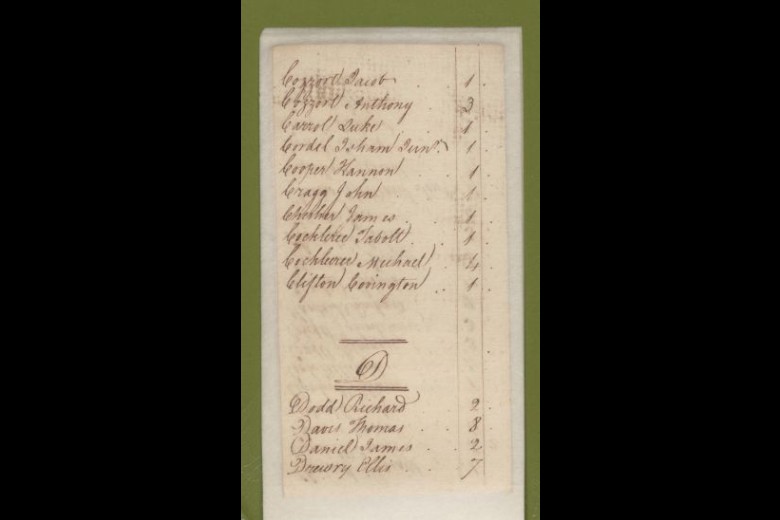 Cozzort Jacob . 1 .
Cozzort Anthony . 3 .
Carrol Duke . 1 .
Cordel Isham Junr. 1 .
Cooper Hannon . 1
Cragg John . 1 .
James . . 1 .
Tabott . 1 .
Michael . 4 .
Clifton Covington . . 1 .
D
Dodd Richard 2 .
Davis Thomas . 8 .
Daniel James . . 2
Drewry Ellis . . 7